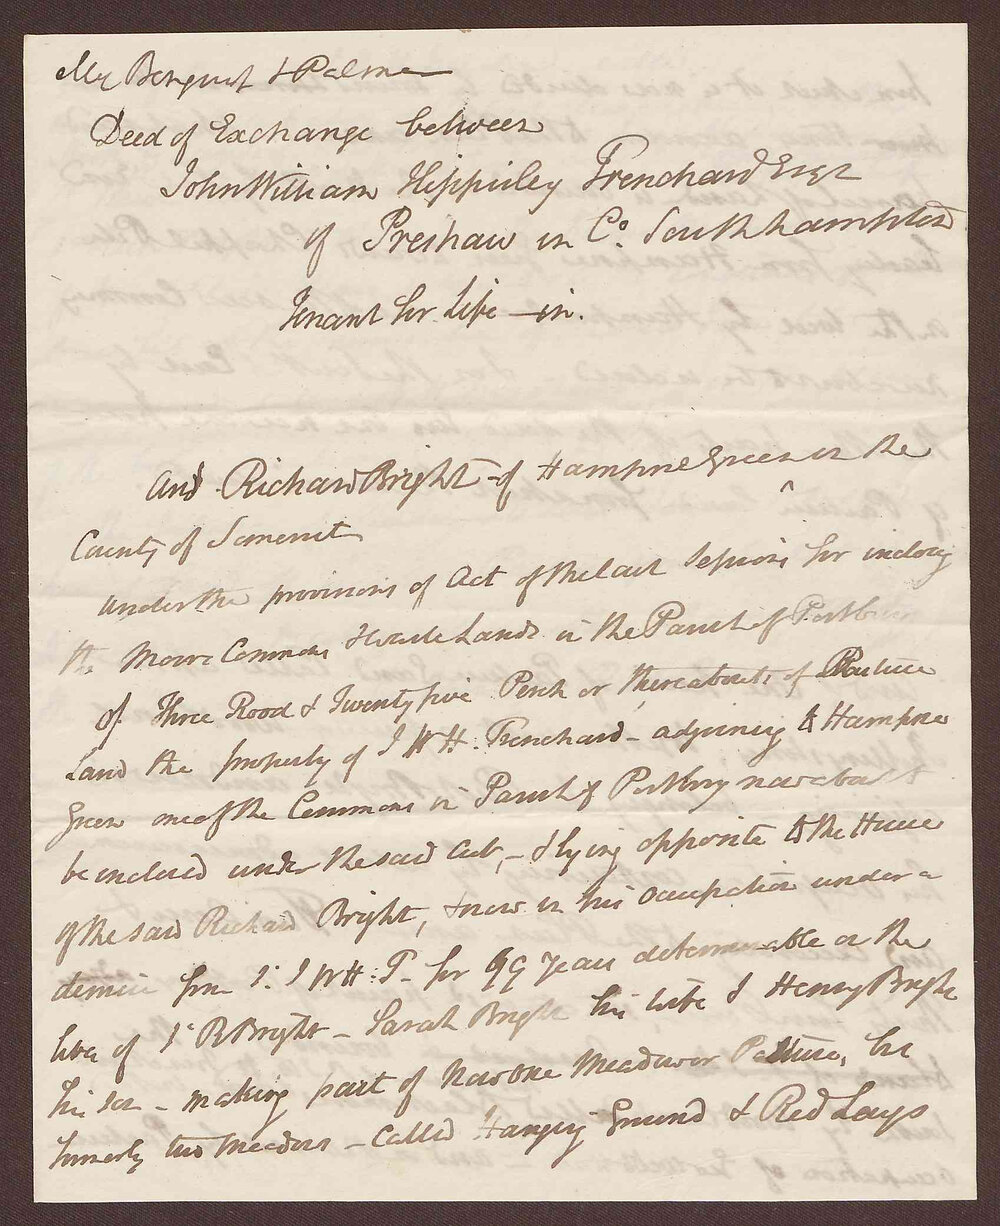 Deed of Exchange between
John William Hippisley Trenchard Esqr
of Preshaw in Co. Southampton
Tenant for Life – in.
And Richard Bright – of Hampne Green in the
County of Somerset
under the provisions of Act of the last Sessions for inclosg
the Moors Commons & Waste Lands in the Parish of Portbury
of Three Rood & Twenty five Perch or thereabouts of Pasture
Land the property of J W H: Trenchard – adjoining to Hampne
Green one of the Commons in Parish of Portbury now about to
be inclosed under the said Act, – & lying opposite to the House
of the said Richard Bright, & now in his occupation under a
demise from sd. J W H: T – for 99 years determinable on the
lives of sd R Bright – Sarah Bright his wife & Henry Bright
his son – making part of Now one Meadow or Pasture, but
formerly two Meadows – Called Hanging Ground & Red Lays